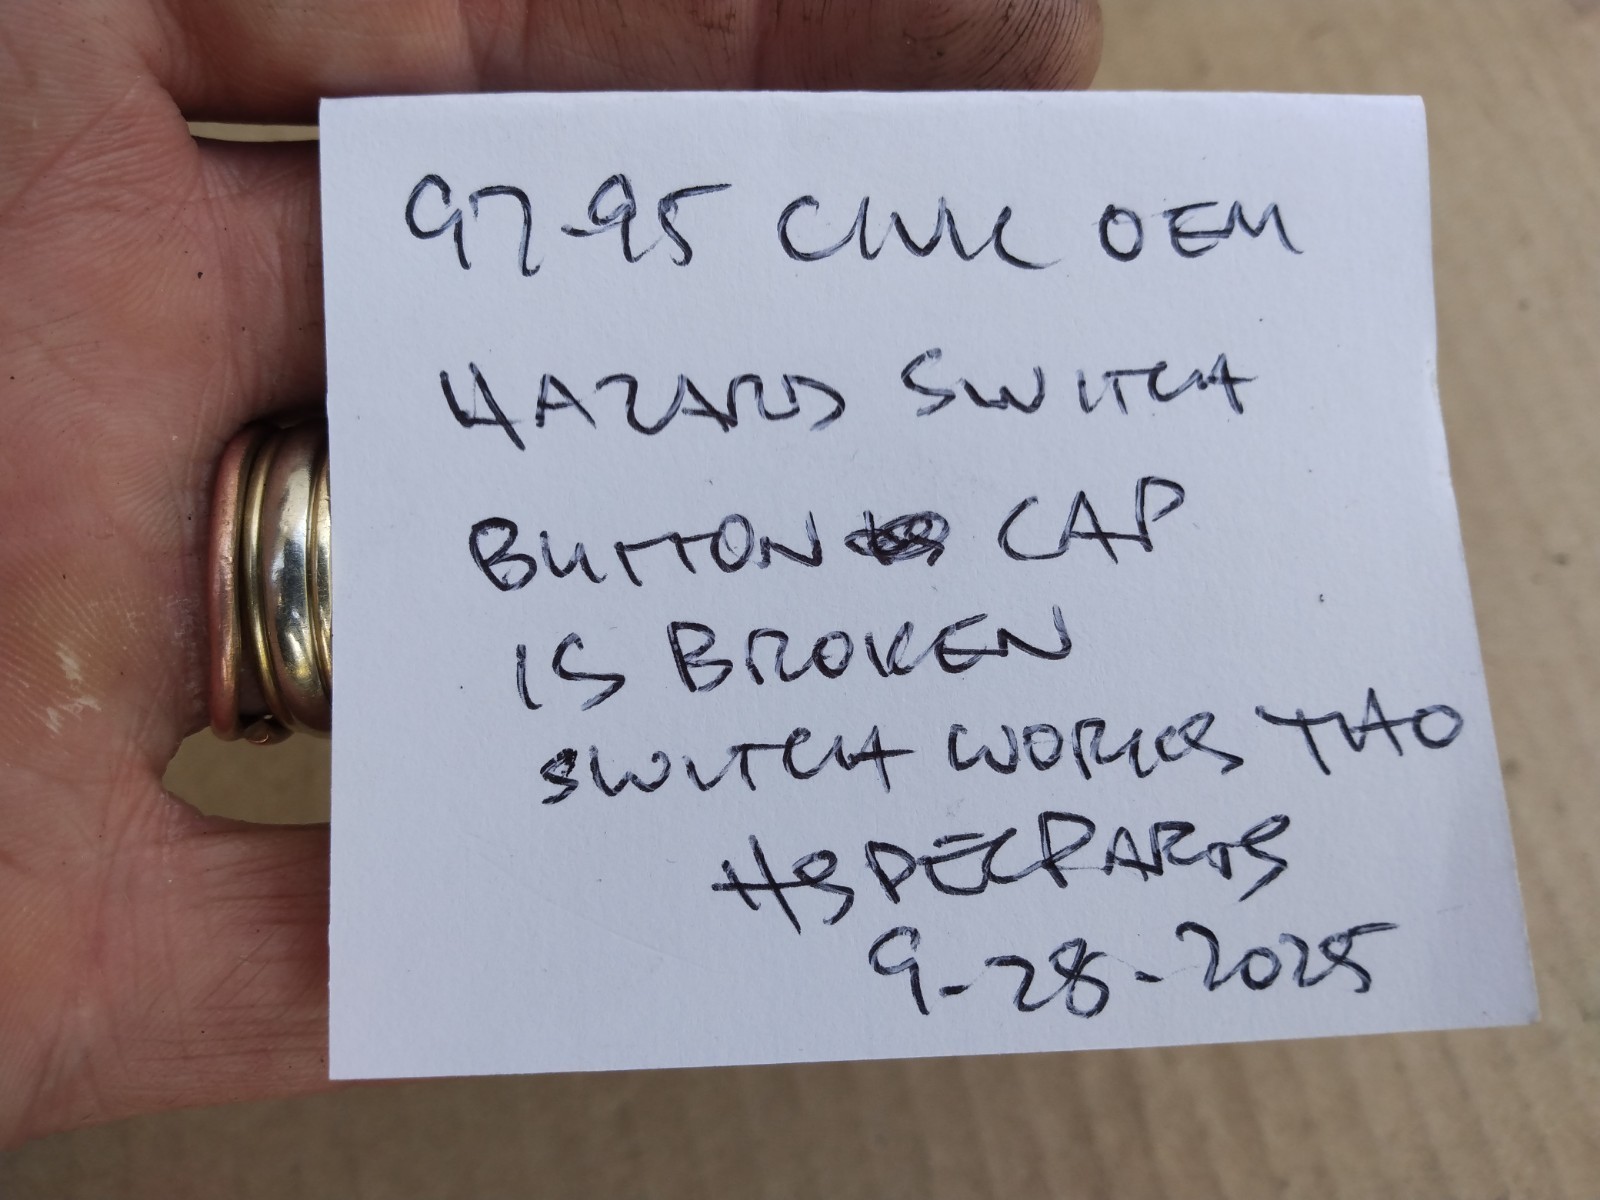 97-95 CIVIC OEM
HAZARD SWITCH
BUTTON CAP
IS BROKEN
SWITCH WORKS THO
HSPECPARTS
9-28-2025